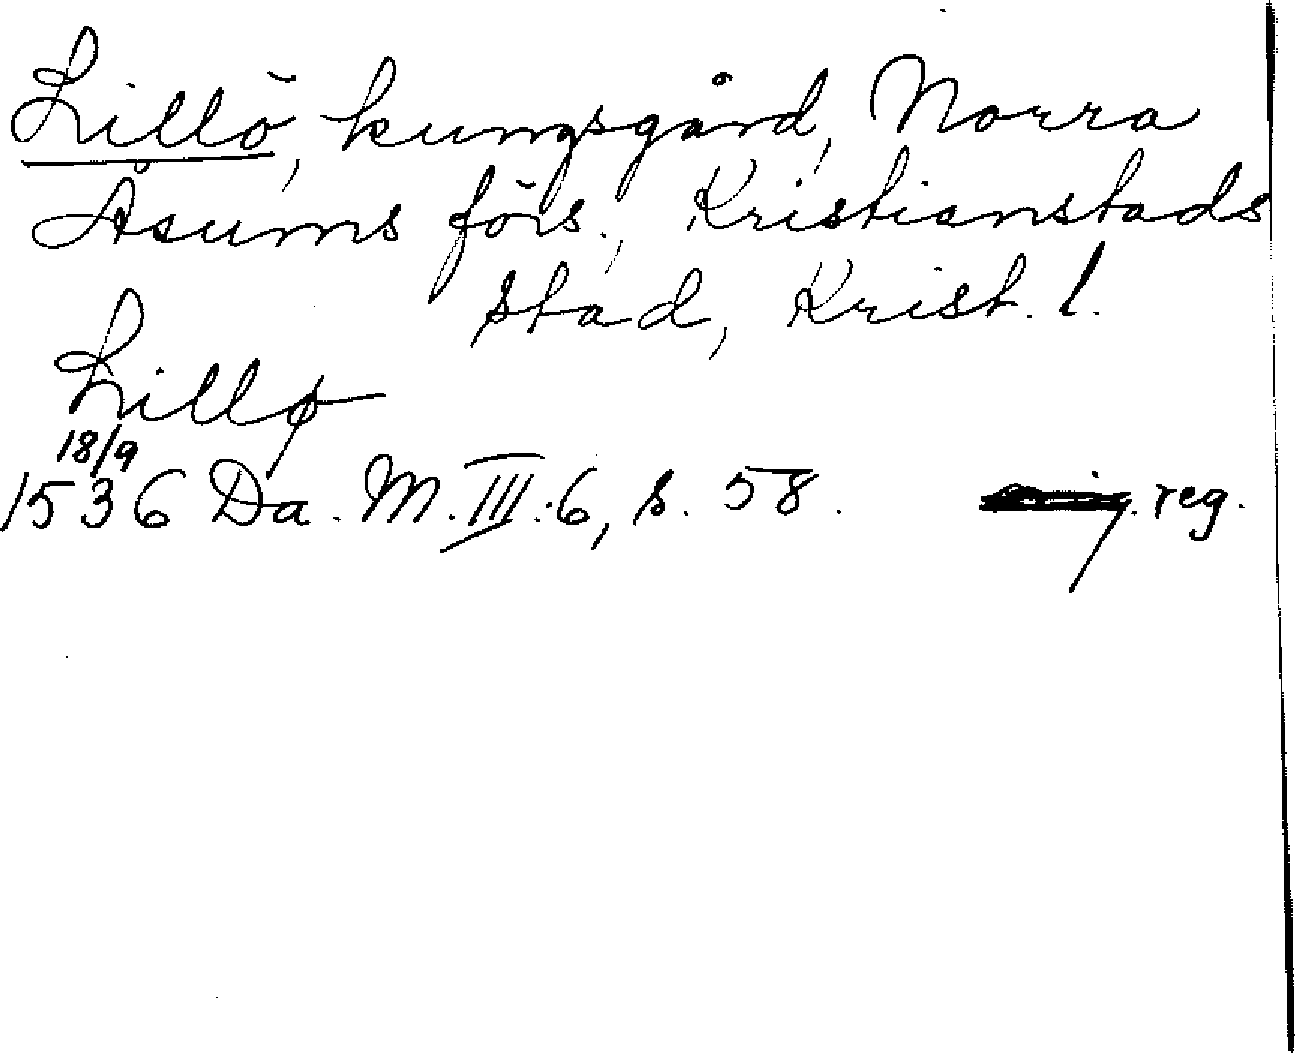 Lillö, kungsgård, Norra
Åsums förs., Kristianstads
stad, Krist. l.
Lillø
18/9
1536 Da. M. III:6, s. 58. reg.